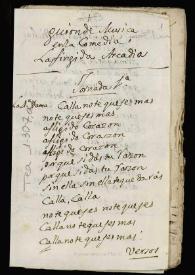 1
Guion de Musica
en la Comedia
La fingida Arcadia
Jornada 1ª
1ª Dama Calla no te quejes mas
no te quejes mas
afligido Corazon
afligido Corazon
afligido Corazon
porque si das tu razon
porque si das tu razon
sin ella sin ella te quedarás
Calla, Calla
no te quejes no te quejes
Calla no te quejes mas
Calla no te quejes mas
Versos
Tea 1-307,